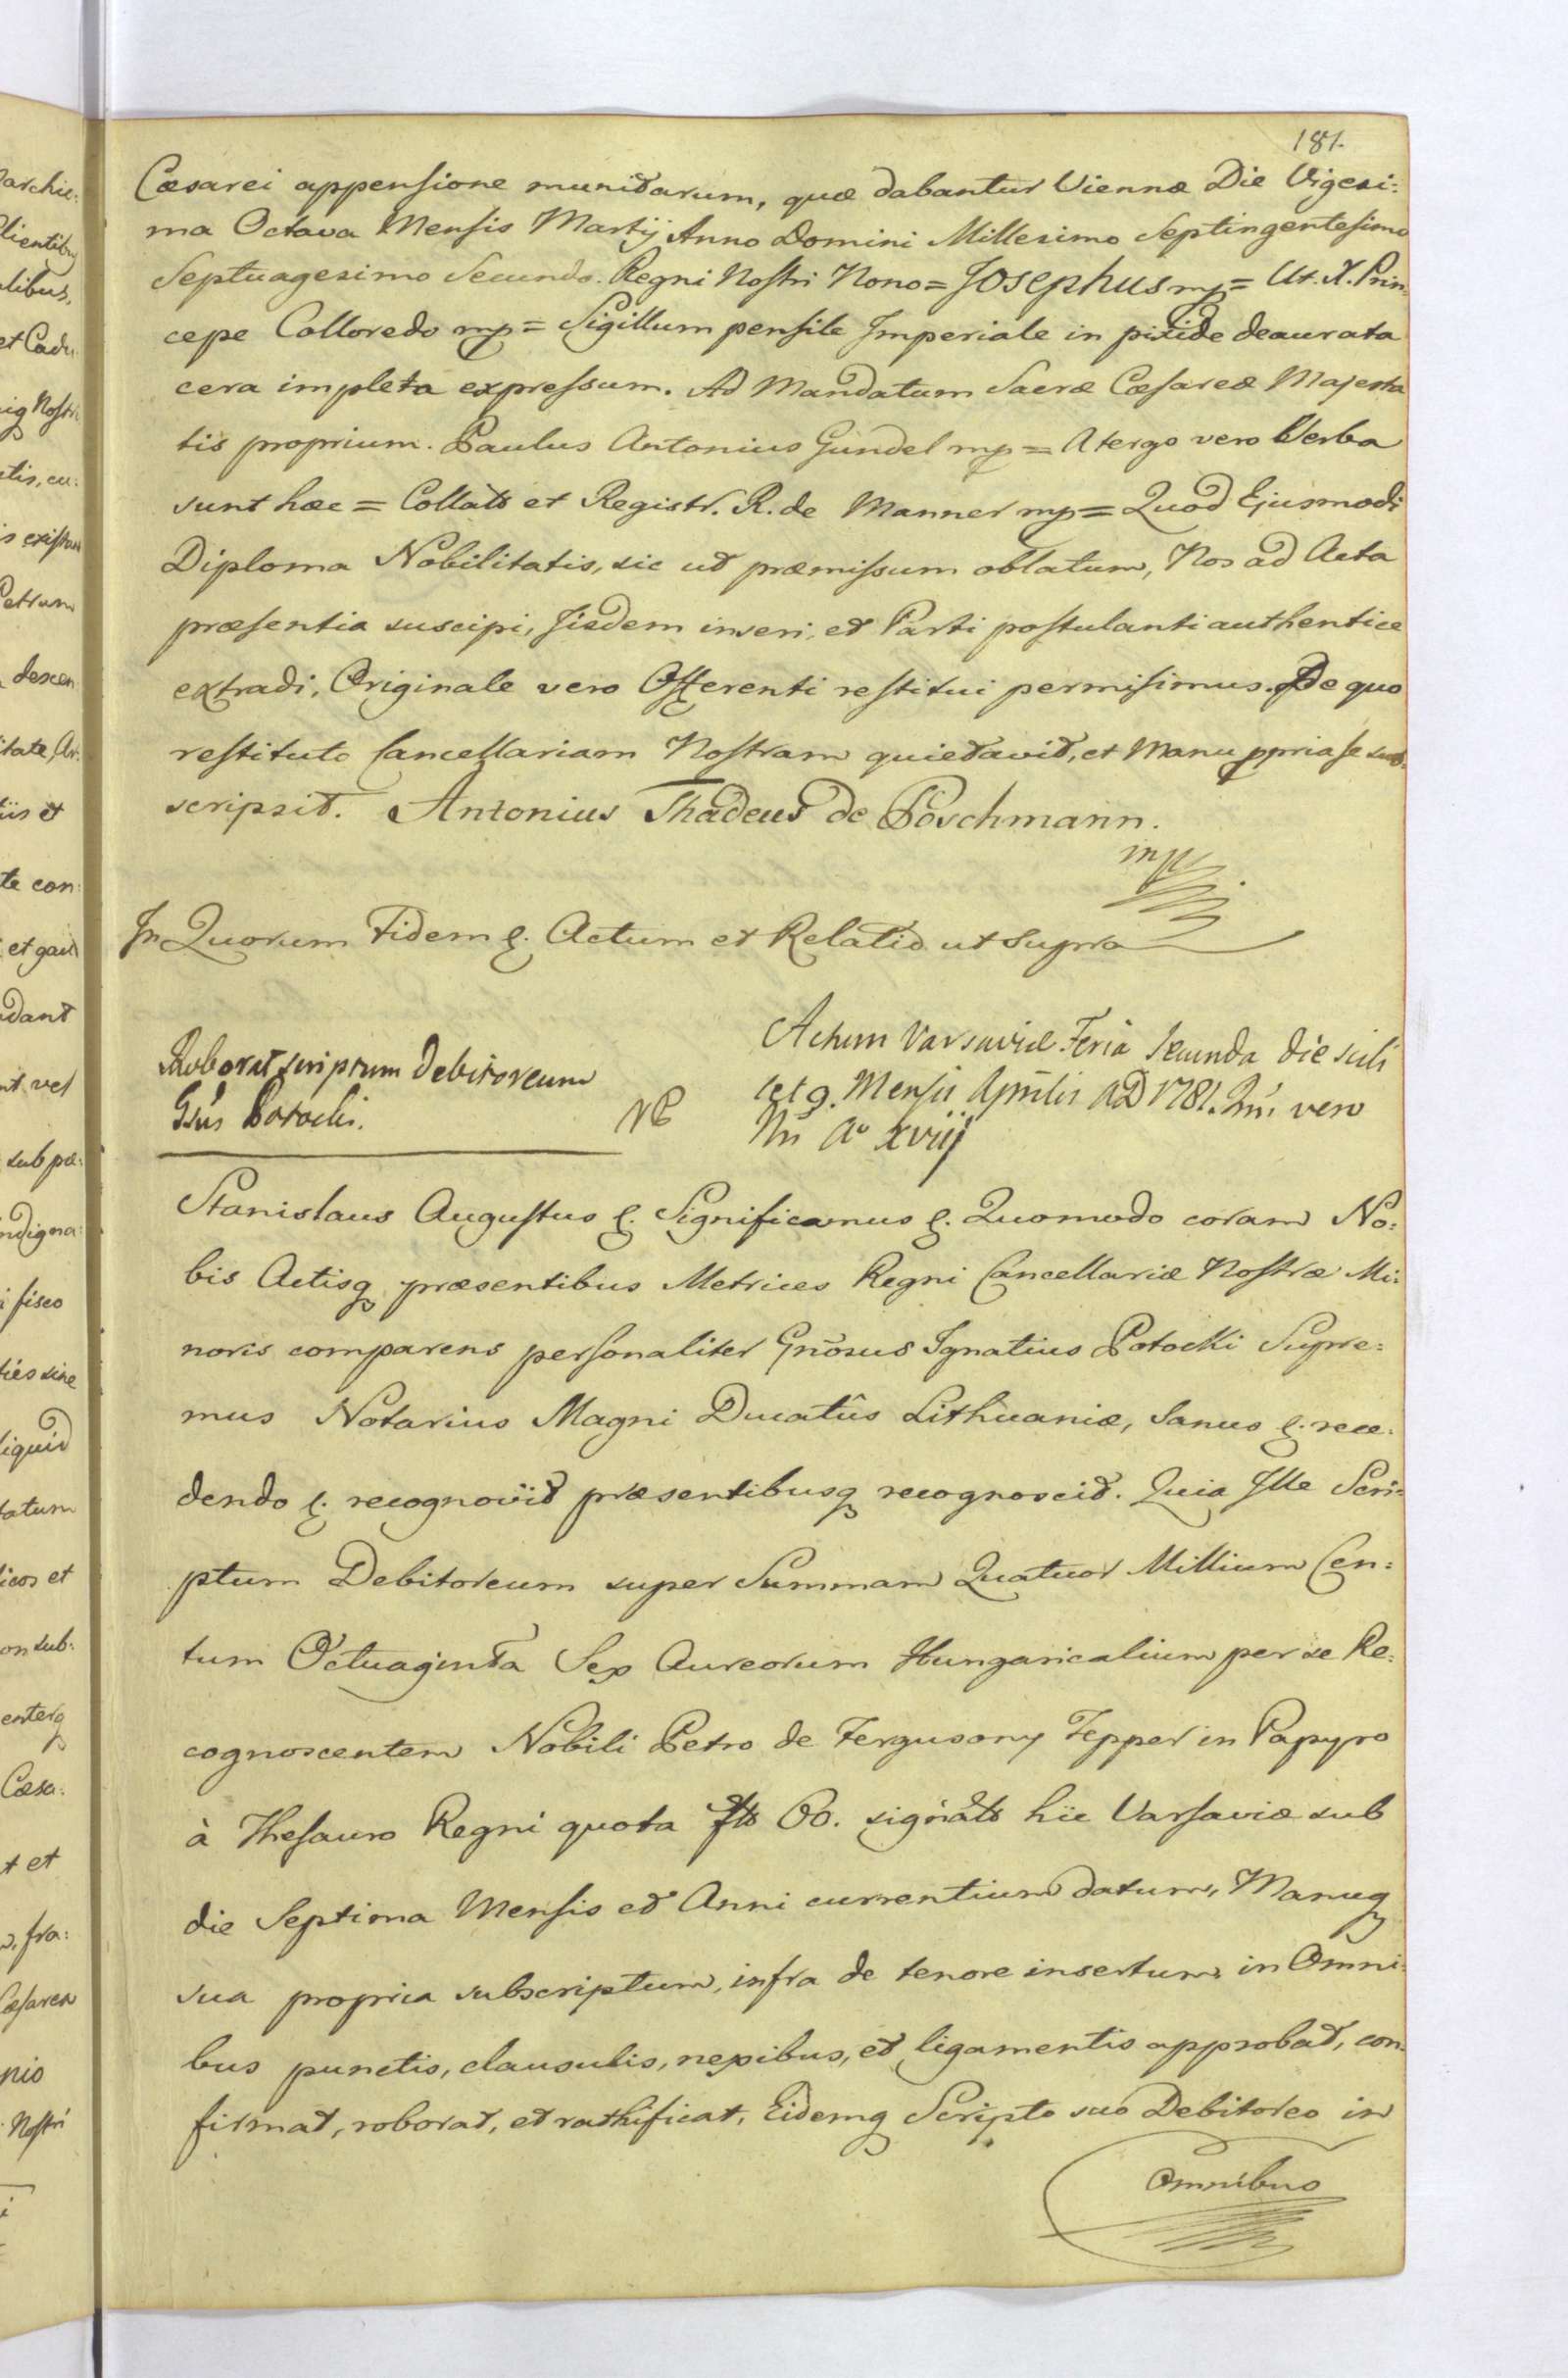 181.
Cæsarei appensione munitarum, quæ dabantur Viennæ Die Vigesi:
ma Octava Mensis Martij Anno Domini Millesimo Septingentesimo
Septuagesimo Secundo. Regni Nostri Nono = Josephus mp = Ut. R. Prin
ceps Colloredo mp = Sigillum pensile Imperiale in pixide deaurata
cera impleta expressum. Ad Mandatum Sacræ Cæsareæ Majesta
tis proprium. Paulus Antonius Gundel mp = A tergo vero Verba
sunt hæc = Collat et Registr. R. de Manner mp = Quod Ejusmodi
Diploma Nobilitatis, sic ut præmissum oblatum, Nos ad Acta
præsentia suscipi, Jisdem inseri, et Parti postulanti authentice
extradi, Originale vero Offerenti restitui permisimus. De quo
restituto Cancellariam Nostram quietavit, et Manu ppria se sub
scripsit. Antonius Thadeus de Poschmann.
mp
In Quorum Fidem &. Actum et Relatio ut supra
Roborat scriptum Debitoreum
Gsus Potocki.
NP
Actum Varsaviæ Feria Secunda die scili
cet 9. Mensis Aprilis AD 1781. Rni vero
Nri Ao xviij
Stanislaus Augustus &. Significamus &. Quomodo coram No:
bis Actisq præsentibus Metrices Regni Cancellariæ Nostræ Mi:
noris comparens personaliter Gnosus Ignatius Potocki Supre:
mus Notarius Magni Ducatûs Lithuaniæ, Sanus &. rece:
dendo &. recognovit præsentibusq recognoscit. Quia Ille Scri:
ptum Debitoreum super Summam Quatuor Millium Cen:
tum Octuaginta Sex Aureorum Hungaricalium per se Re:
cognoscentem Nobili Petro de Fergusony Tepper in Papyro
à Thesauro Regni quota fl 60. signat hic Varsaviæ sub
die Septima Mensis et Anni currentium datum, Manuq
sua propria subscriptum, infra de tenore insertum, in Omni
bus punctis, clausulis, nexibus, et ligamentis approbat, con
firmat, roborat, et rathificat, Eidemq Scripto suo Debitoreo in
Omnibus